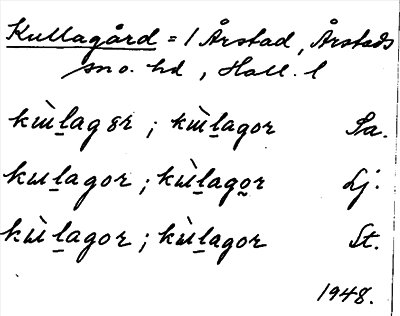 Kullagård = 1 Årstad, Årstads
sno. hd, Hall. l
kɯ̀l̠agər ; kɯ̀l̠agor Sa.
kɯl̠agor ; kɯ̀l̠ago̠r Lj.
kɯ̀l̠agor ; kɯ̀l̠agor St.
1948.